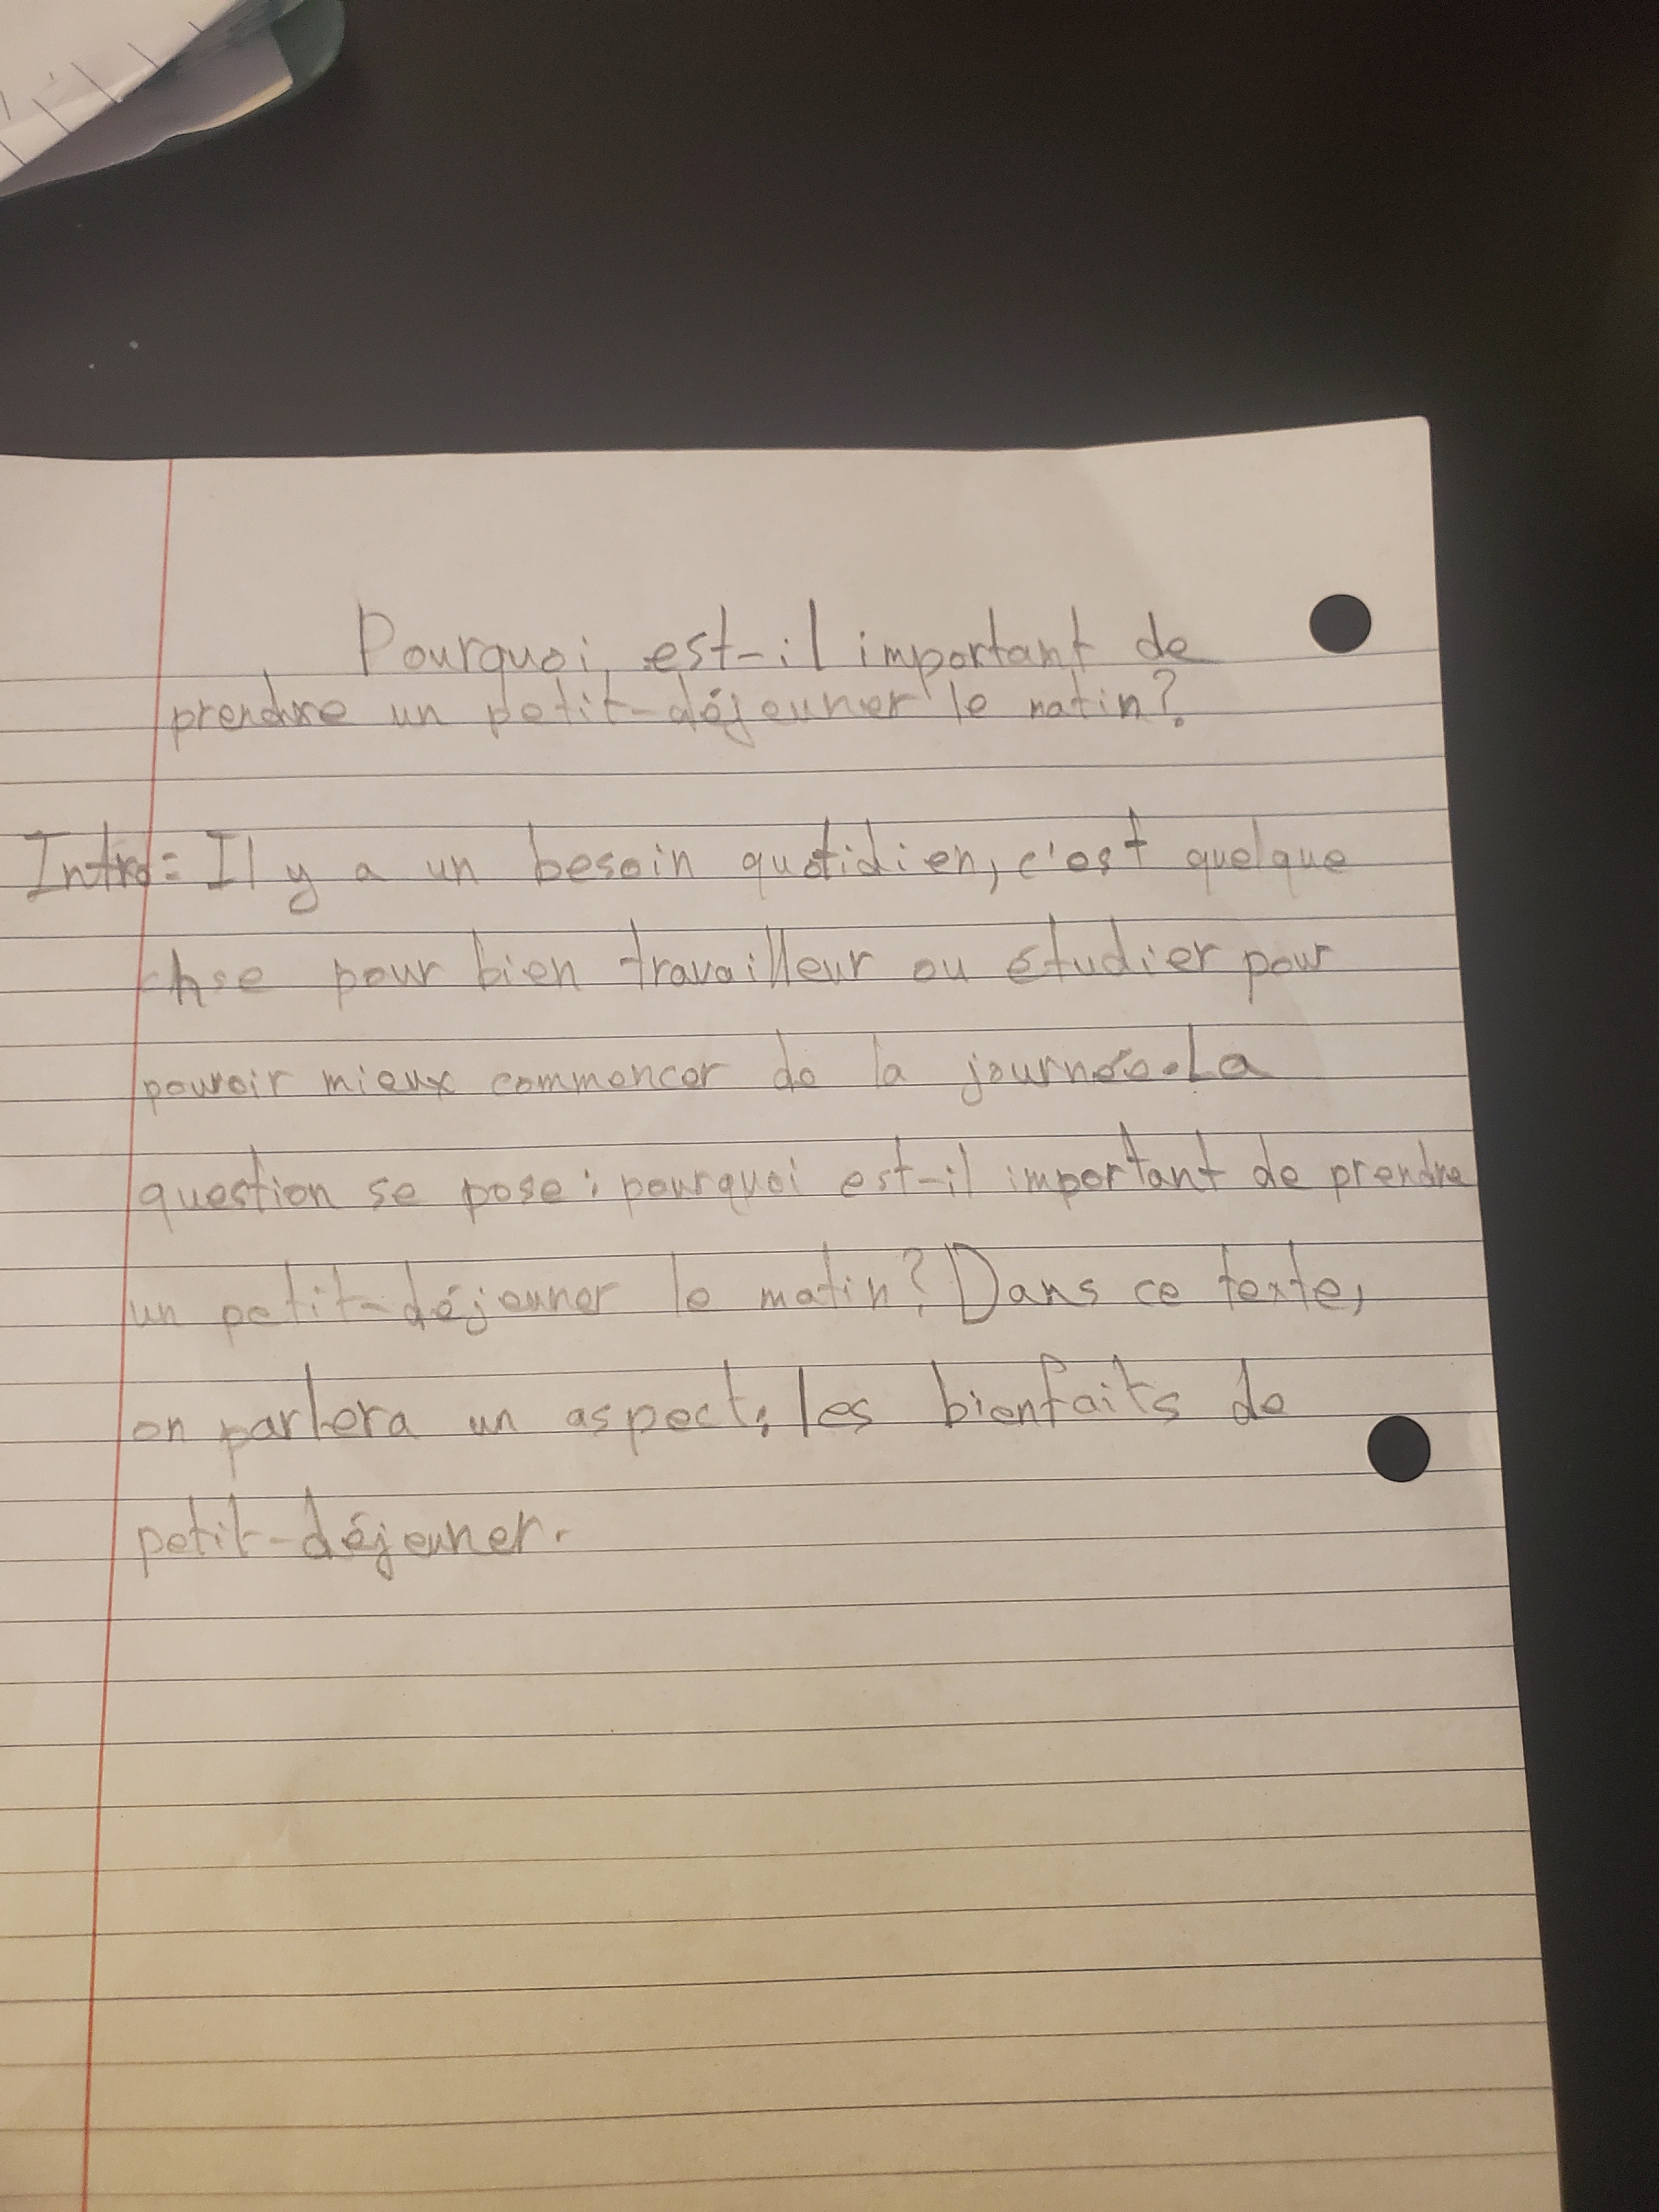 Pourquoi est-il important de
prendre un petit-déjeuner le matin?
Intro: Il y a un besoin quotidien, c'est quelque
chse pour bien travailleur ou étudier pour
pouvoir mieux commencer de la journée. La
question se pose: pourquoi est-il important de prendre
un petit-déjeuner le matin? Dans ce texte,
on parlera un aspect: les bienfaits de
petit-déjeuner.